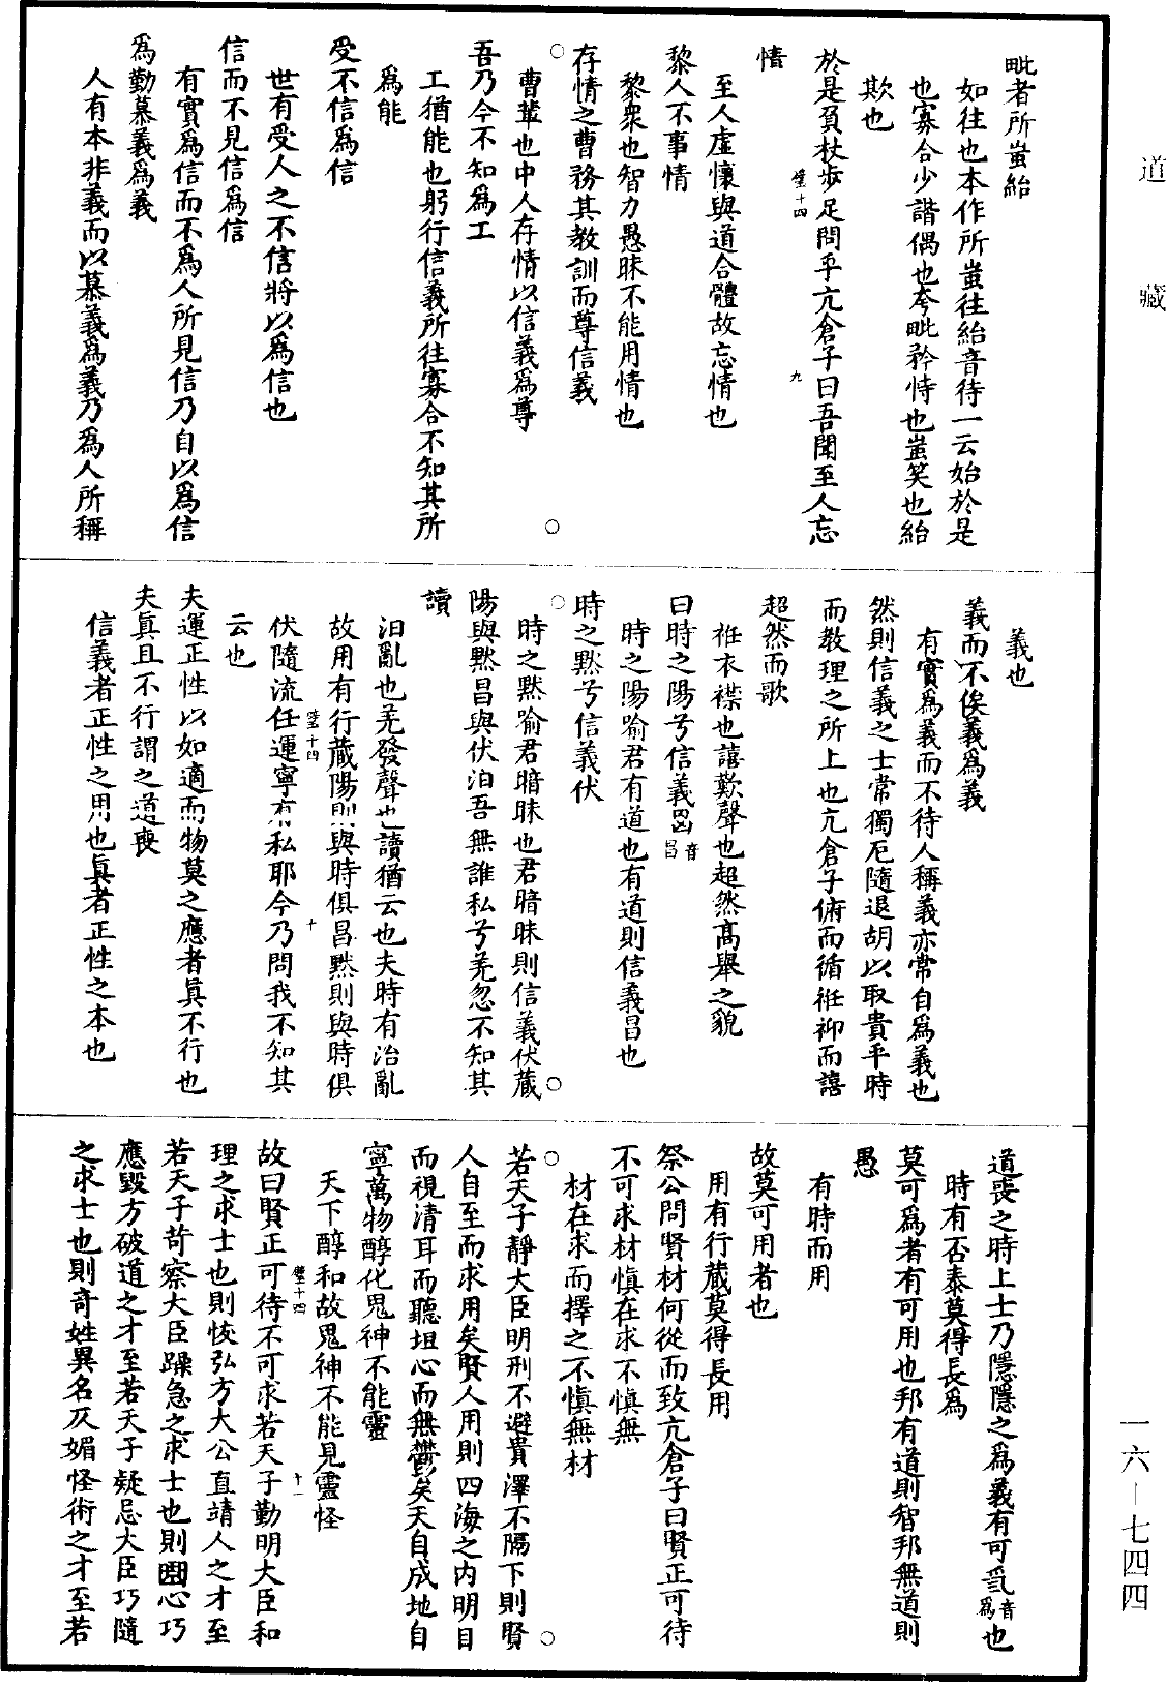 道藏
毗者所蚩紿
如往也本作所蚩往紿音待一云始於是
也寡合少諧偶也夸毗矜恃也蚩笑也紿
欺也
於是負杖步足問乎亢倉子曰吾聞至人忘
璧十四
九
情
至人虛懷與道合體故忘情也
黎人不事情
黎衆也智力愚昧不能用情也
存情之曹務其教訓而尊信義
曹輩也中人存情以信義爲尊
吾乃今不知爲工
工猶能也躬行信義所往寡合不知其所
爲能
受不信爲信
世有受人之不信將以爲信也
信而不見信爲信
有實爲信而不爲人所見信乃自以爲信
爲勤慕義爲義
人有本非義而以慕義爲義乃爲人所稱
義也
義而不俟義爲義
有實爲義而不待人稱義亦常自爲義也
然則信義之士常獨厄隨退胡以取貴乎時
而教理之所上也亢倉子俯而循袵仰而譆
超然而歌
袵衣襟也譆歎聲也超然高舉之貌
曰時之陽兮信義昌音昌
時之陽喻君有道也有道則信義昌也
時之黙兮信義伏
時之黙喻君暗昧也君暗昧則信義伏藏
陽與黙昌與伏汨吾無誰私兮羌忽不知其
讀
汨亂也羌發聲也讀猶云也夫時有治亂
故用有行藏陽則與時俱昌黙則與時俱
璧十四
十
伏隨流任運寧有私耶今乃問我不知其
云也
夫運正性以如適而物莫之應者眞不行也
夫眞且不行謂之道喪
信義者正性之用也眞者正性之本也
道喪之時上士乃隱隱之爲義有可音爲也
時有否泰莫得長爲
莫可爲者有可用也邦有道則智邦無道則
愚
有時而用
故莫可用者也
用有行藏莫得長用
祭公問賢材何從而致亢倉子曰賢正可待
不可求材愼在求不愼無
材在求而擇之不愼無材
若天子靜大臣明刑不避貴澤不隔下則賢
人自至而求用矣賢人用則四海之内明目
而視清耳而聽坦心而無鬱矣天自成地自
寧萬物醇化鬼神不能靈
天下醇和故鬼神不能見靈怪
璧十四
十一
故曰賢正可待不可求若天子勤明大臣和
理之求士也則恢弘方大公直靖人之才至
若天子苛察大臣躁急之求士也則固心巧
應毀方破道之才至若天子疑忌大臣巧隨
之求士也則奇姓異名仄媚怪術之才至若
一六—七四四